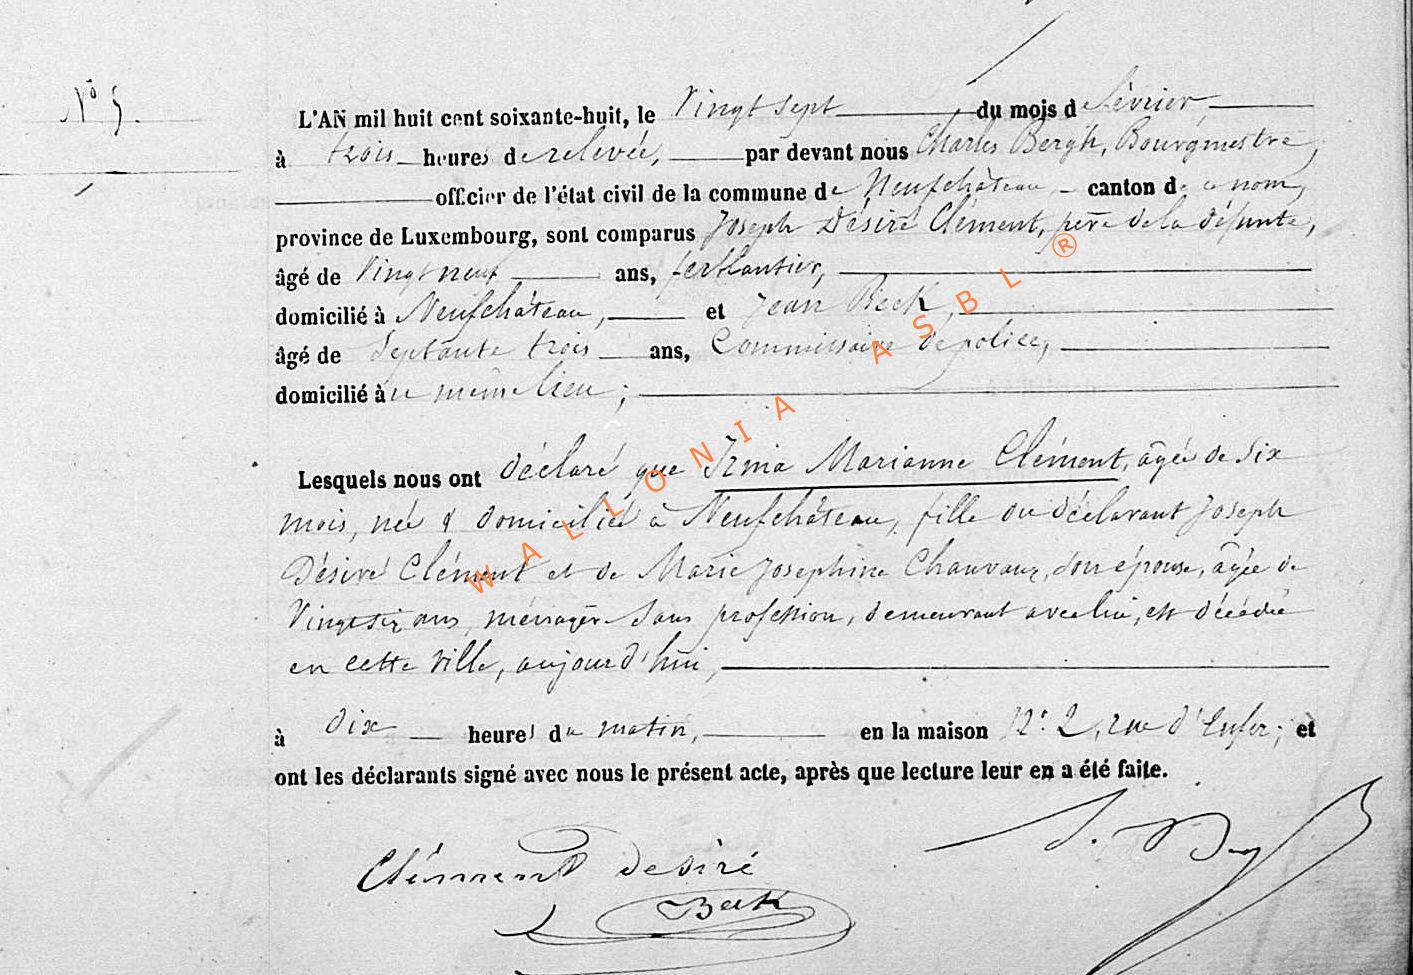 N° 5.
L'AN mil huit cent soixante-huit, le Vingt sept du mois de février
à trois heures de relevée, par devant nous Charles Bergh, Bourgmestre,
officier de l'état civil de la commune de Neufchâteau, canton de ce nom,
province de Luxembourg, sont comparus Joseph Désiré Clément, père de la défunte,
âgé de Vingt neuf ans, ferblantier,
domicilié à Neufchâteau, et Jean Beck,
âgé de Septante trois ans, Commissaire de police,
domicilié à ce même lieu ;
Lesquels nous ont déclaré que Irma Marianne Clément, âgée de Six
mois, née & domiciliée à Neufchâteau, fille du déclarant Joseph
Désiré Clément et de Marie Josephine Chauvaux, son épouse, âgée de
Vingt six ans, ménagère sans profession, demeurant avec lui, est décédée
en cette ville, aujourd'hui,
à dix heures du matin, en la maison N° 2, rue d'Enfer ; et
ont les déclarants signé avec nous le présent acte, après que lecture leur en a été faite.
Clément Desiré
Beck
WALLONIA ASBL ®